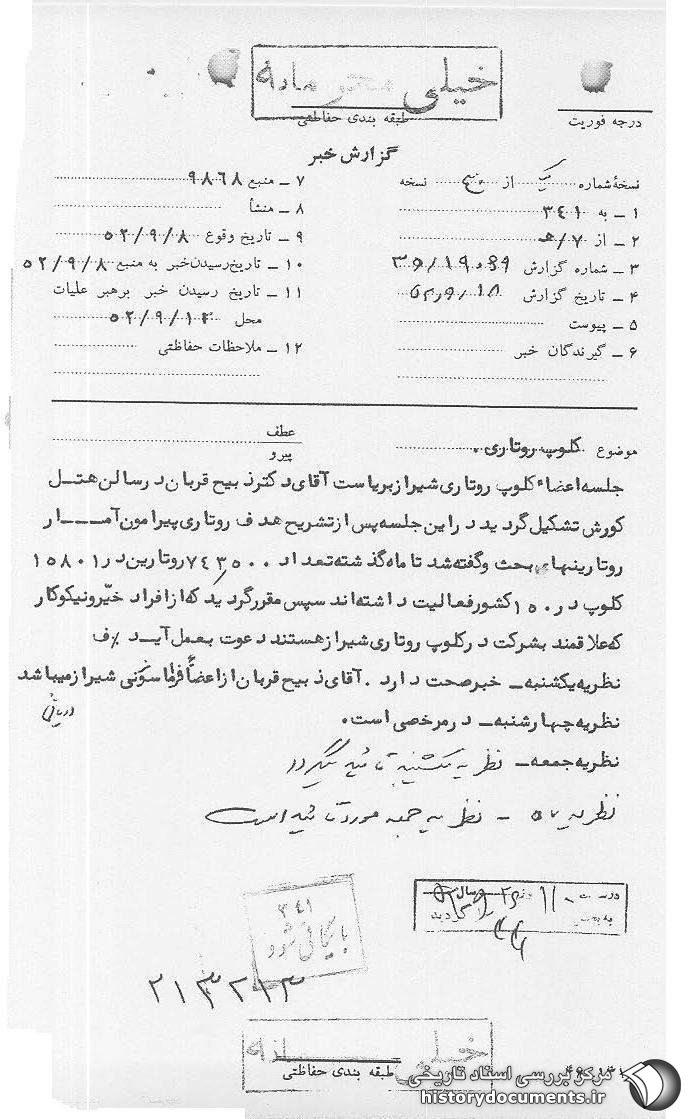 خیلی محرمانه
طبقه بندی حفاظتی
درجه فوریت
گزارش خبر
نسخهٔ شماره یک از پنج نسخه
۱ ـ به ۳٤۱
۲ ـ از ۷/هـ
۳ ـ شماره گزارش
۴ ـ تاریخ گزارش
۵ ـ پیوست
۶ ـ گیرندگان خبر
۷ ـ منبع ۹۸٦۸
۸ ـ منشأ
۹ ـ تاریخ وقوع ۵۲/۹/۸
۱۰ ـ تاریخ رسیدن خبر به منبع ۵۲/۹/۸
۱۱ ـ تاریخ رسیدن خبر برهبر عملیات
محل
۱۲ ـ ملاحظات حفاظتی
موضوع کلوپ روتاری.
عطف
پیرو
جلسه اعضاء کلوپ روتاری شیراز بریاست آقای دکتر ذبیح قربان در سالن هتل
کورش تشکیل گردید در این جلسه پس از تشریح هدف روتاری پیرامون آمار
روتارینهای بحث و گفته شد تا ماه گذشته تعداد ۷٤۳۵۰۰ روتارین در ۱۵۸۰۱
کلوپ در ۱۵۰ کشور فعالیت داشته اند سپس مقرر گردید که از افراد خیّر و نیکوکار
که علاقمند بشرکت در کلوپ روتاری شیراز هستند دعوت بعمل آید ٪ف
نظریه یکشنبه ـ خبر صحت دارد. آقای ذبیح قربان از اعضاً فرماسونی شیراز میباشد
نظریه چهارشنبه ـ در مرخصی است.
نظریه جمعه ـ نظریه یکشنبه تائید میگردد
نظریه ۵۷ ـ نظریه جمعه مورد تائید است
۳٤۱
بایگانی شود
۲۱۳۲۱۳
خیلی
طبقه بندی حفاظتی
مرکز بررسی اسناد تاریخی
historydocuments.ir